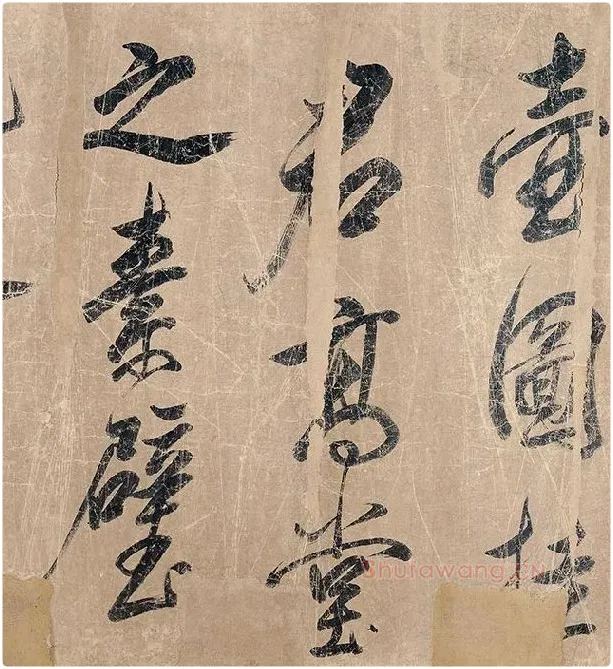 壺圖挂
君高堂
之素壁
Shufawang.CN